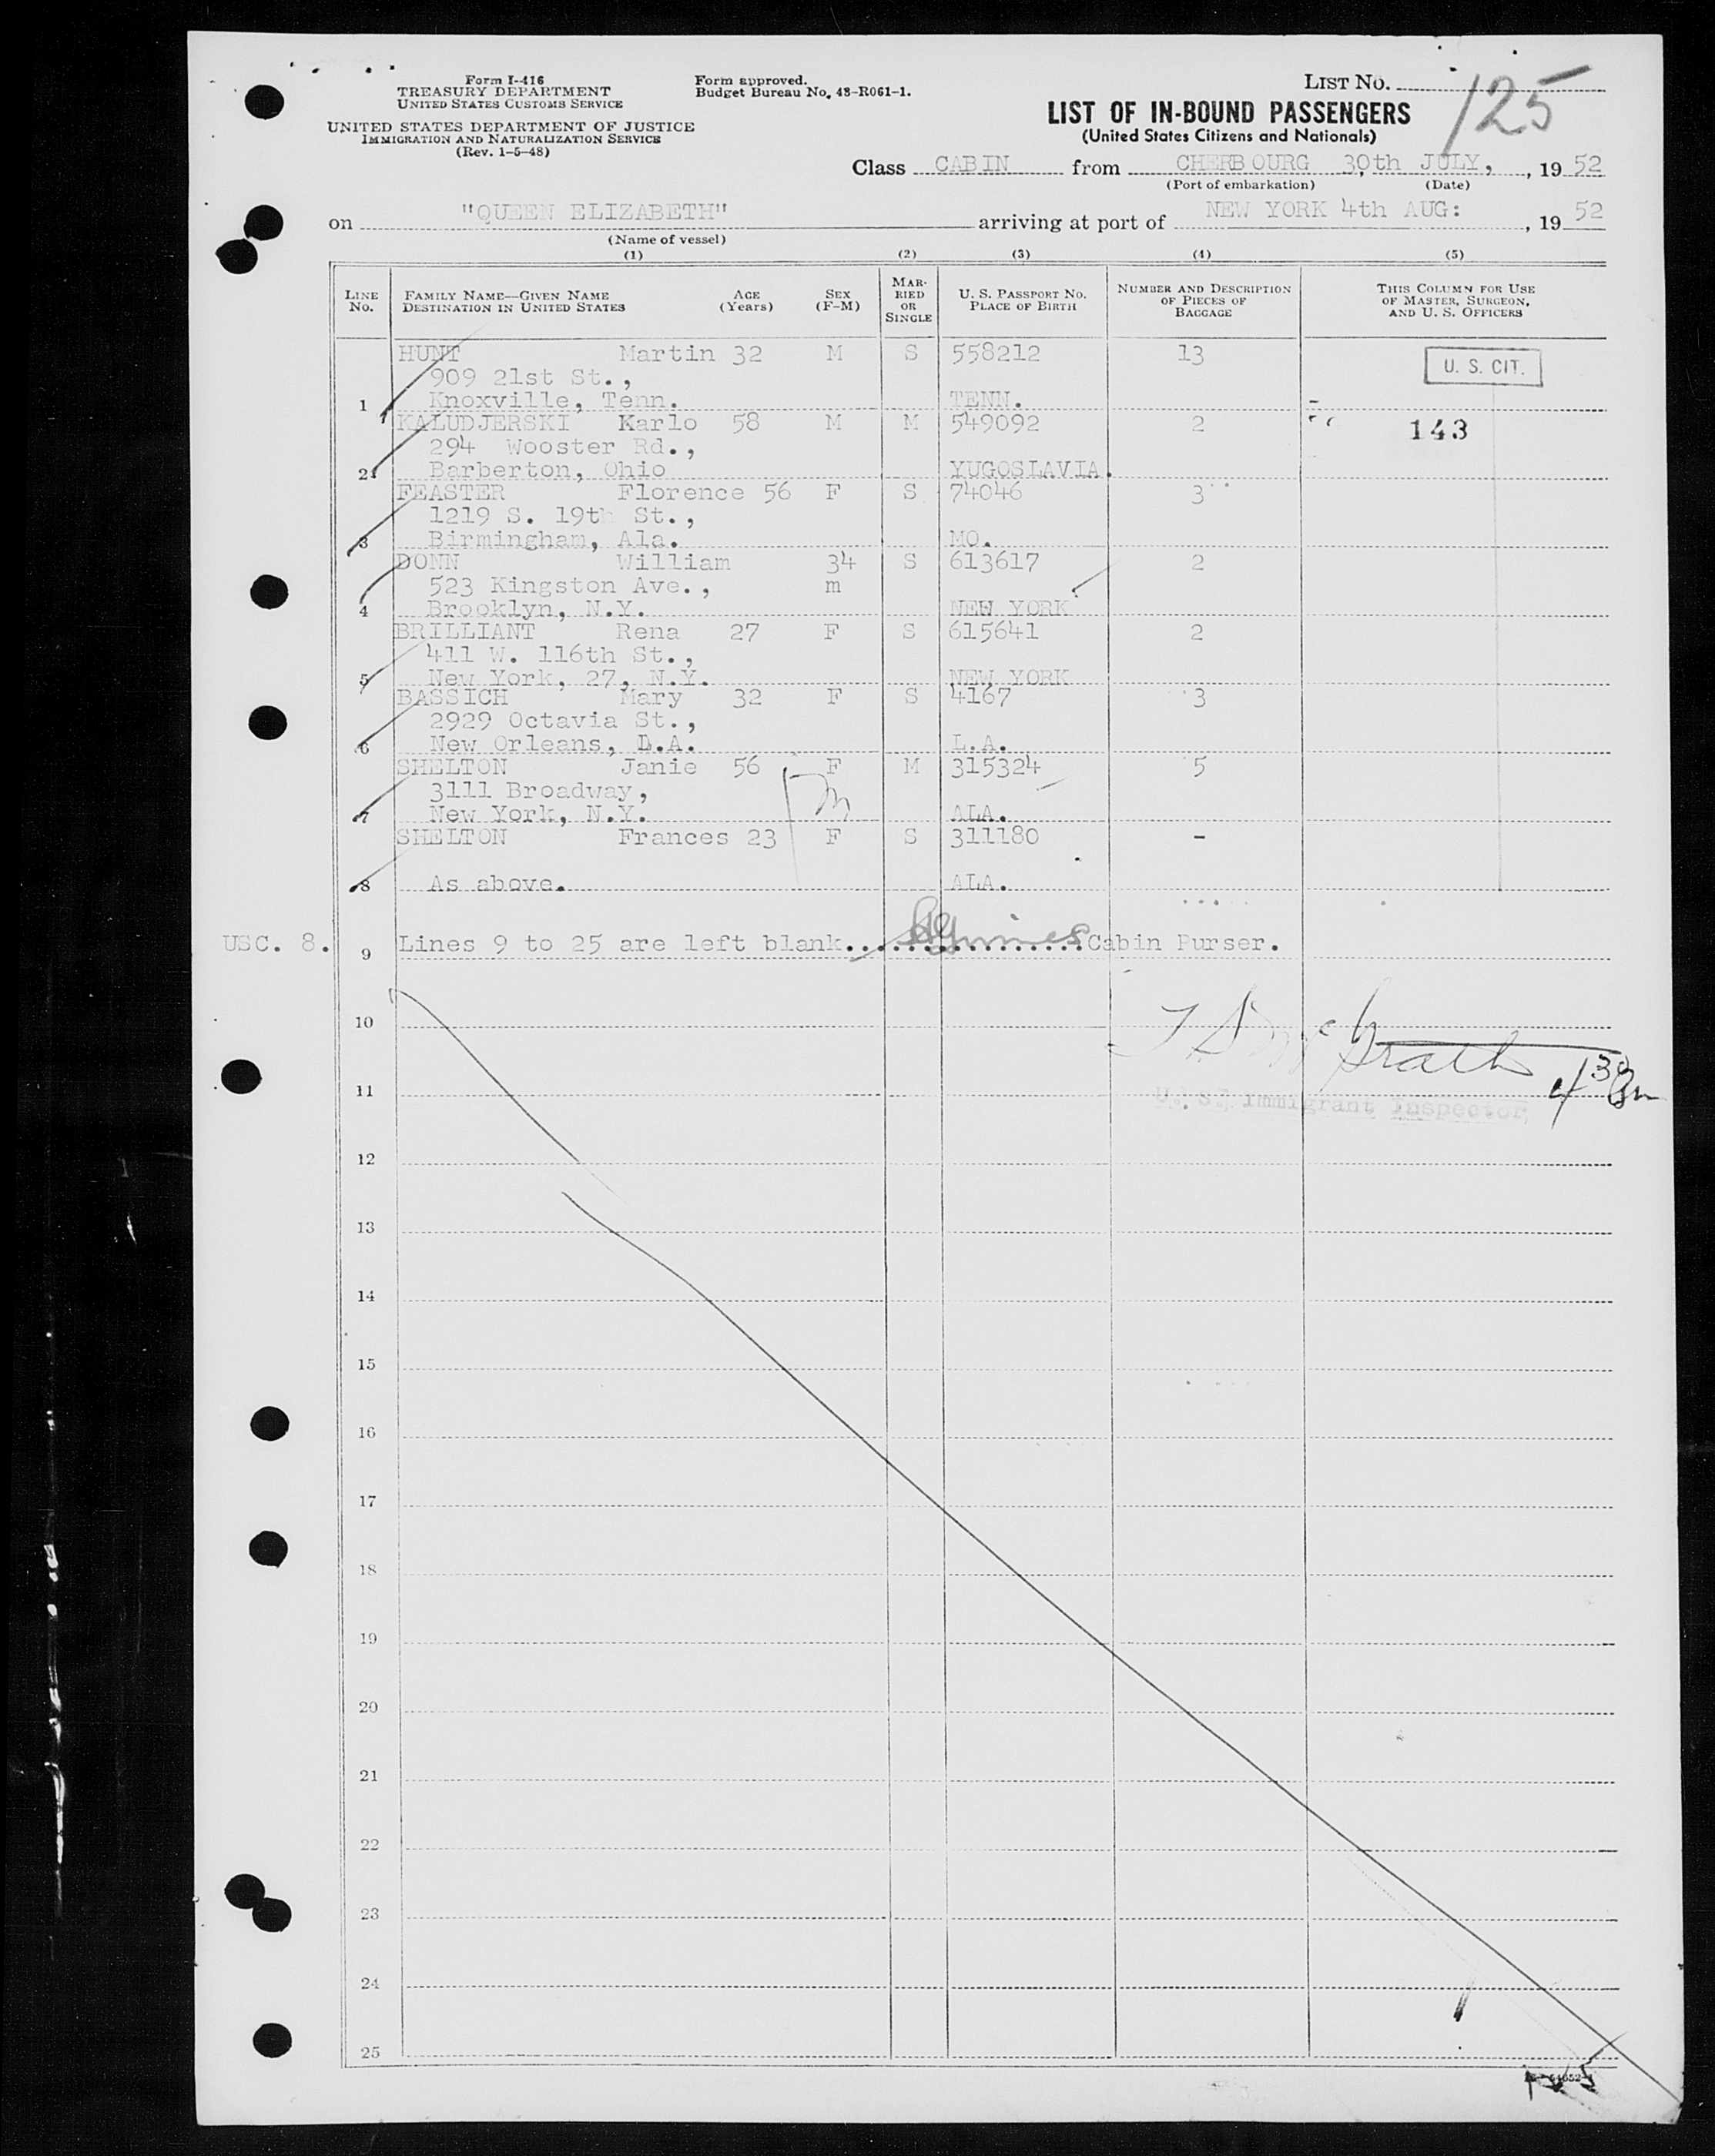 Form I-416
TREASURY DEPARTMENT
UNITED STATES CUSTOMS SERVICE
UNITED STATES DEPARTMENT OF JUSTICE
IMMIGRATION AND NATURALIZATION SERVICE
(Rev. 1-5-48)
Form approved.
Budget Bureau No. 48-R061-1.
LIST NO. 125
LIST OF IN-BOUND PASSENGERS
(United States Citizens and Nationals)
Class CABIN from CHERBOURG 30th JULY, , 19 52
(Port of embarkation) (Date)
on "QUEEN ELIZABETH" arriving at port of NEW YORK 4th AUG: , 19 52
(Name of vessel)
(1) (2) (3) (4) (5)
LINE NO. FAMILY NAME—GIVEN NAME DESTINATION IN UNITED STATES AGE (Years) SEX (F-M) MARRIED OR SINGLE U. S. PASSPORT NO. PLACE OF BIRTH NUMBER AND DESCRIPTION OF PIECES OF BAGGAGE THIS COLUMN FOR USE OF MASTER, SURGEON, AND U. S. OFFICERS
HUNT Martin 32 M S 558212 13 U. S. CIT.
909 21st St.,
1 Knoxville, Tenn. TENN.
KALUDJERSKI Karlo 58 M M 549092 2 143
294 Wooster Rd.,
2 Barberton, Ohio YUGOSLAVIA.
FEASTER Florence 56 F S 74046 3
1219 S. 19th St.,
3 Birmingham, Ala. MO.
DONN William 34 S 613617 2
523 Kingston Ave., m
4 Brooklyn, N.Y. NEW YORK
BRILLIANT Rena 27 F S 615641 2
411 W. 116th St.,
5 New York, 27, N.Y. NEW YORK
BASSICH Mary 32 F S 4167 3
2929 Octavia St.,
6 New Orleans, L.A. L.A.
SHELTON Janie 56 F M 315324 5
3111 Broadway, m
7 New York, N.Y. ALA.
SHELTON Frances 23 F S 311180 -
8 As above. ALA.
USC. 8. 9 Lines 9 to 25 are left blank................Cabin Purser.
10
McGrath
11 U. S. Immigrant Inspector
12
13
14
15
16
17
18
19
20
21
22
23
24
25
125